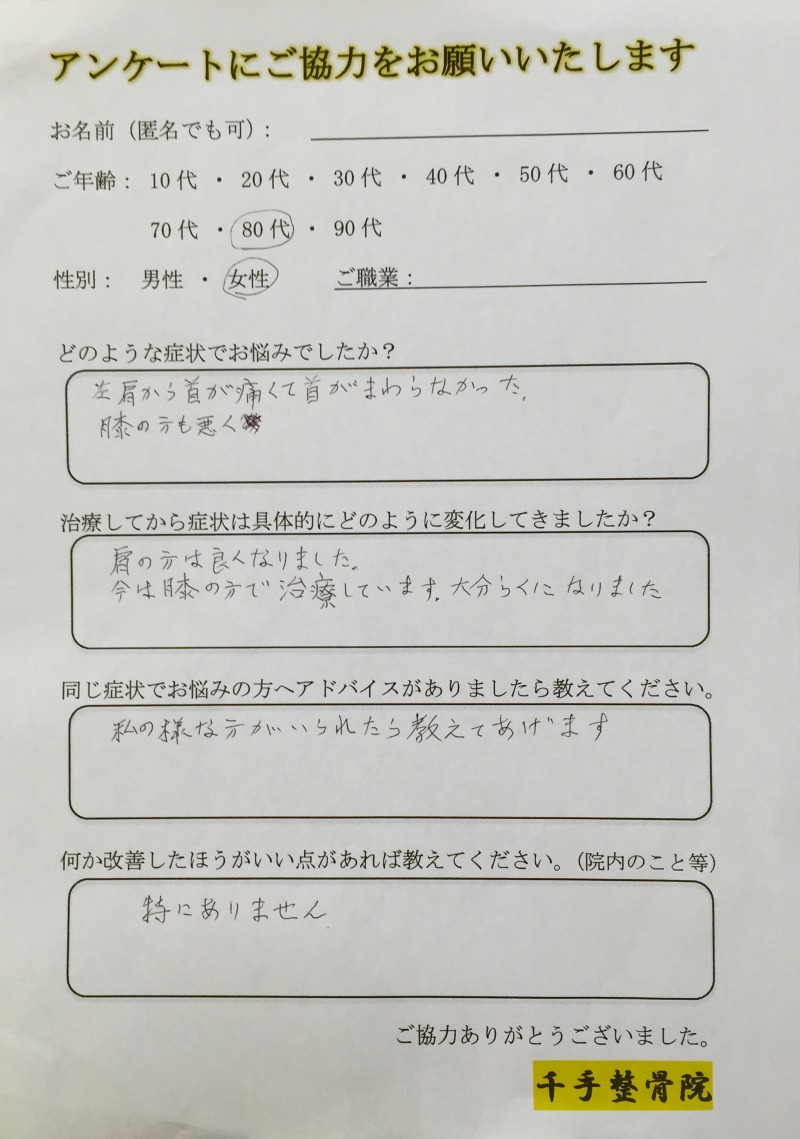 アンケートにご協力をお願いいたします
お名前（匿名でも可）：
ご年齢： 10代 ・ 20代 ・ 30代 ・ 40代 ・ 50代 ・ 60代
70代 ・ 80代 ・ 90代
性別： 男性 ・ 女性 ご職業：
どのような症状でお悩みでしたか？
左肩から首が痛くて首がまわらなかった。
膝の方も悪く
治療してから症状は具体的にどのように変化してきましたか？
肩の方は良くなりました。
今は膝の方で治療しています。大分らくになりました
同じ症状でお悩みの方へアドバイスがありましたら教えてください。
私の様な方がいられたら教えてあげます
何か改善したほうがいい点があれば教えてください。（院内のこと等）
特にありません
ご協力ありがとうございました。
千手整骨院